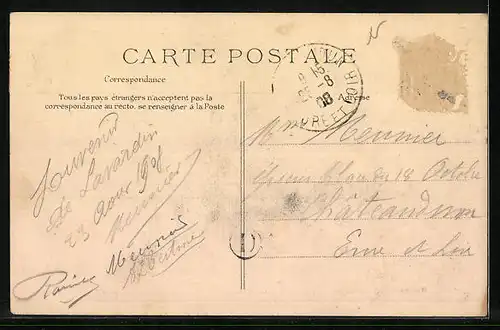 CARTE POSTALE
Correspondance
Tous les pays étrangers n'acceptent pas la
correspondance au recto. se renseigner à la Poste
Adresse
-8
08
EURE-ET-LOIR
Souvenir
de Lavardin
23 Aout 1908
Meunier
Meunier
Mme Meunier
du 18 Octobre
Châteaudun
Eure et Loir